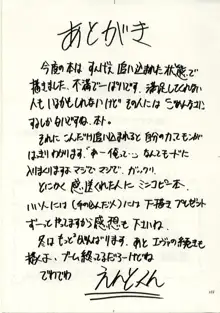 あとがき
今度の本は すんげえ 追い込まれた状態で
描きました。不満で一ぱいです。満足してくれない
人もいるかもしれないけど その人には ごめんなさい
するしかないですね。ホント。
それに こんだけ追い込まれると 自分のカスさかげんが
はっきりわかります。「オレって…」なんてモードに
入りまくりますよ マジで マジで。ガックリ。
とにかく 感想くれた人に ミニコピー本、
いい人には (手の込んだ人) には 下描きプレゼント
ずーっとやってますから 感想も 下さいね。
次は もっとがんばります。あと エヴァの続きも
描くよ。ブーム終ってるだろーけどね。
でわでわ
えんどくん